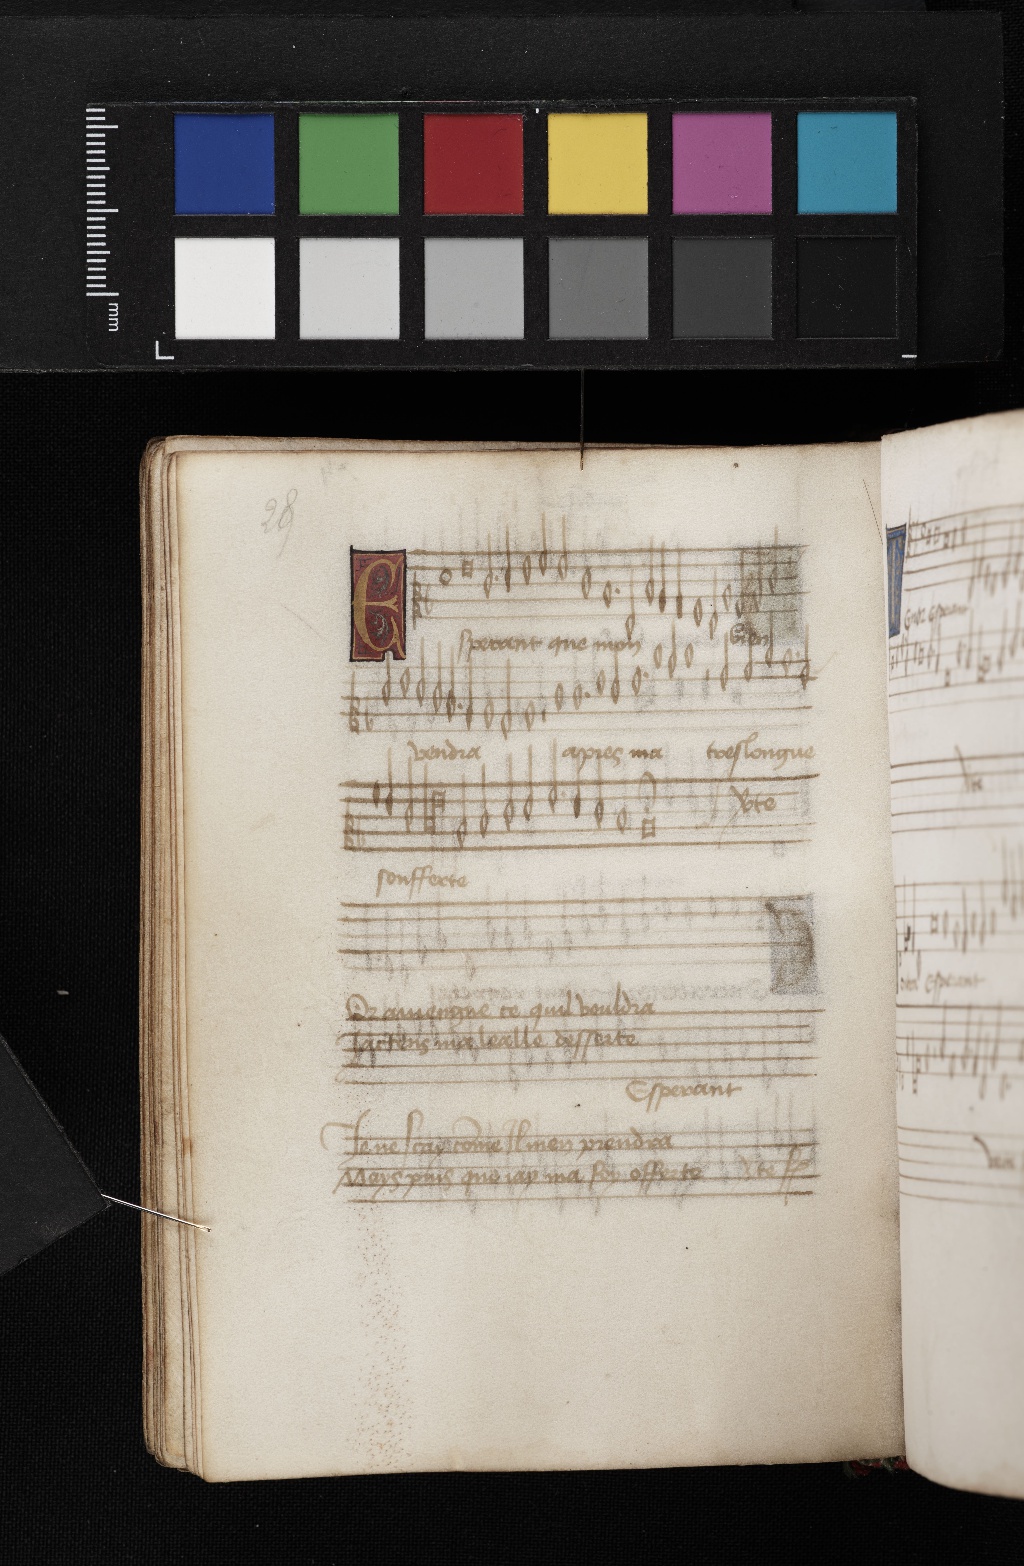 mm
28
Esperant que mon bien
vendra apres ma toeslongue
Vte
soufferte
Or aauiengne ce quil vouldra
Jactens ma lealle desserte
Esperant
Je ne scay come Il men prendra
Mays puis que iay ma foy offerte Vte
Contra Esperant
Vte
Esperant